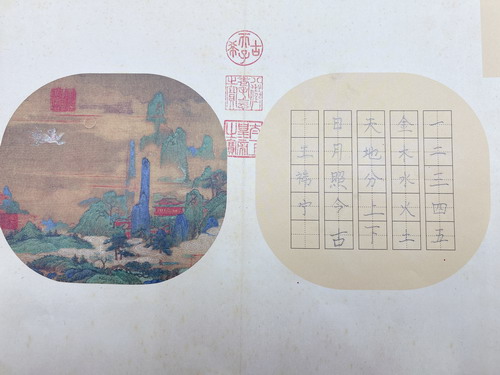 一二三四五
金木水火土
天地分上下
日月照今古
王端宁
古稀天子